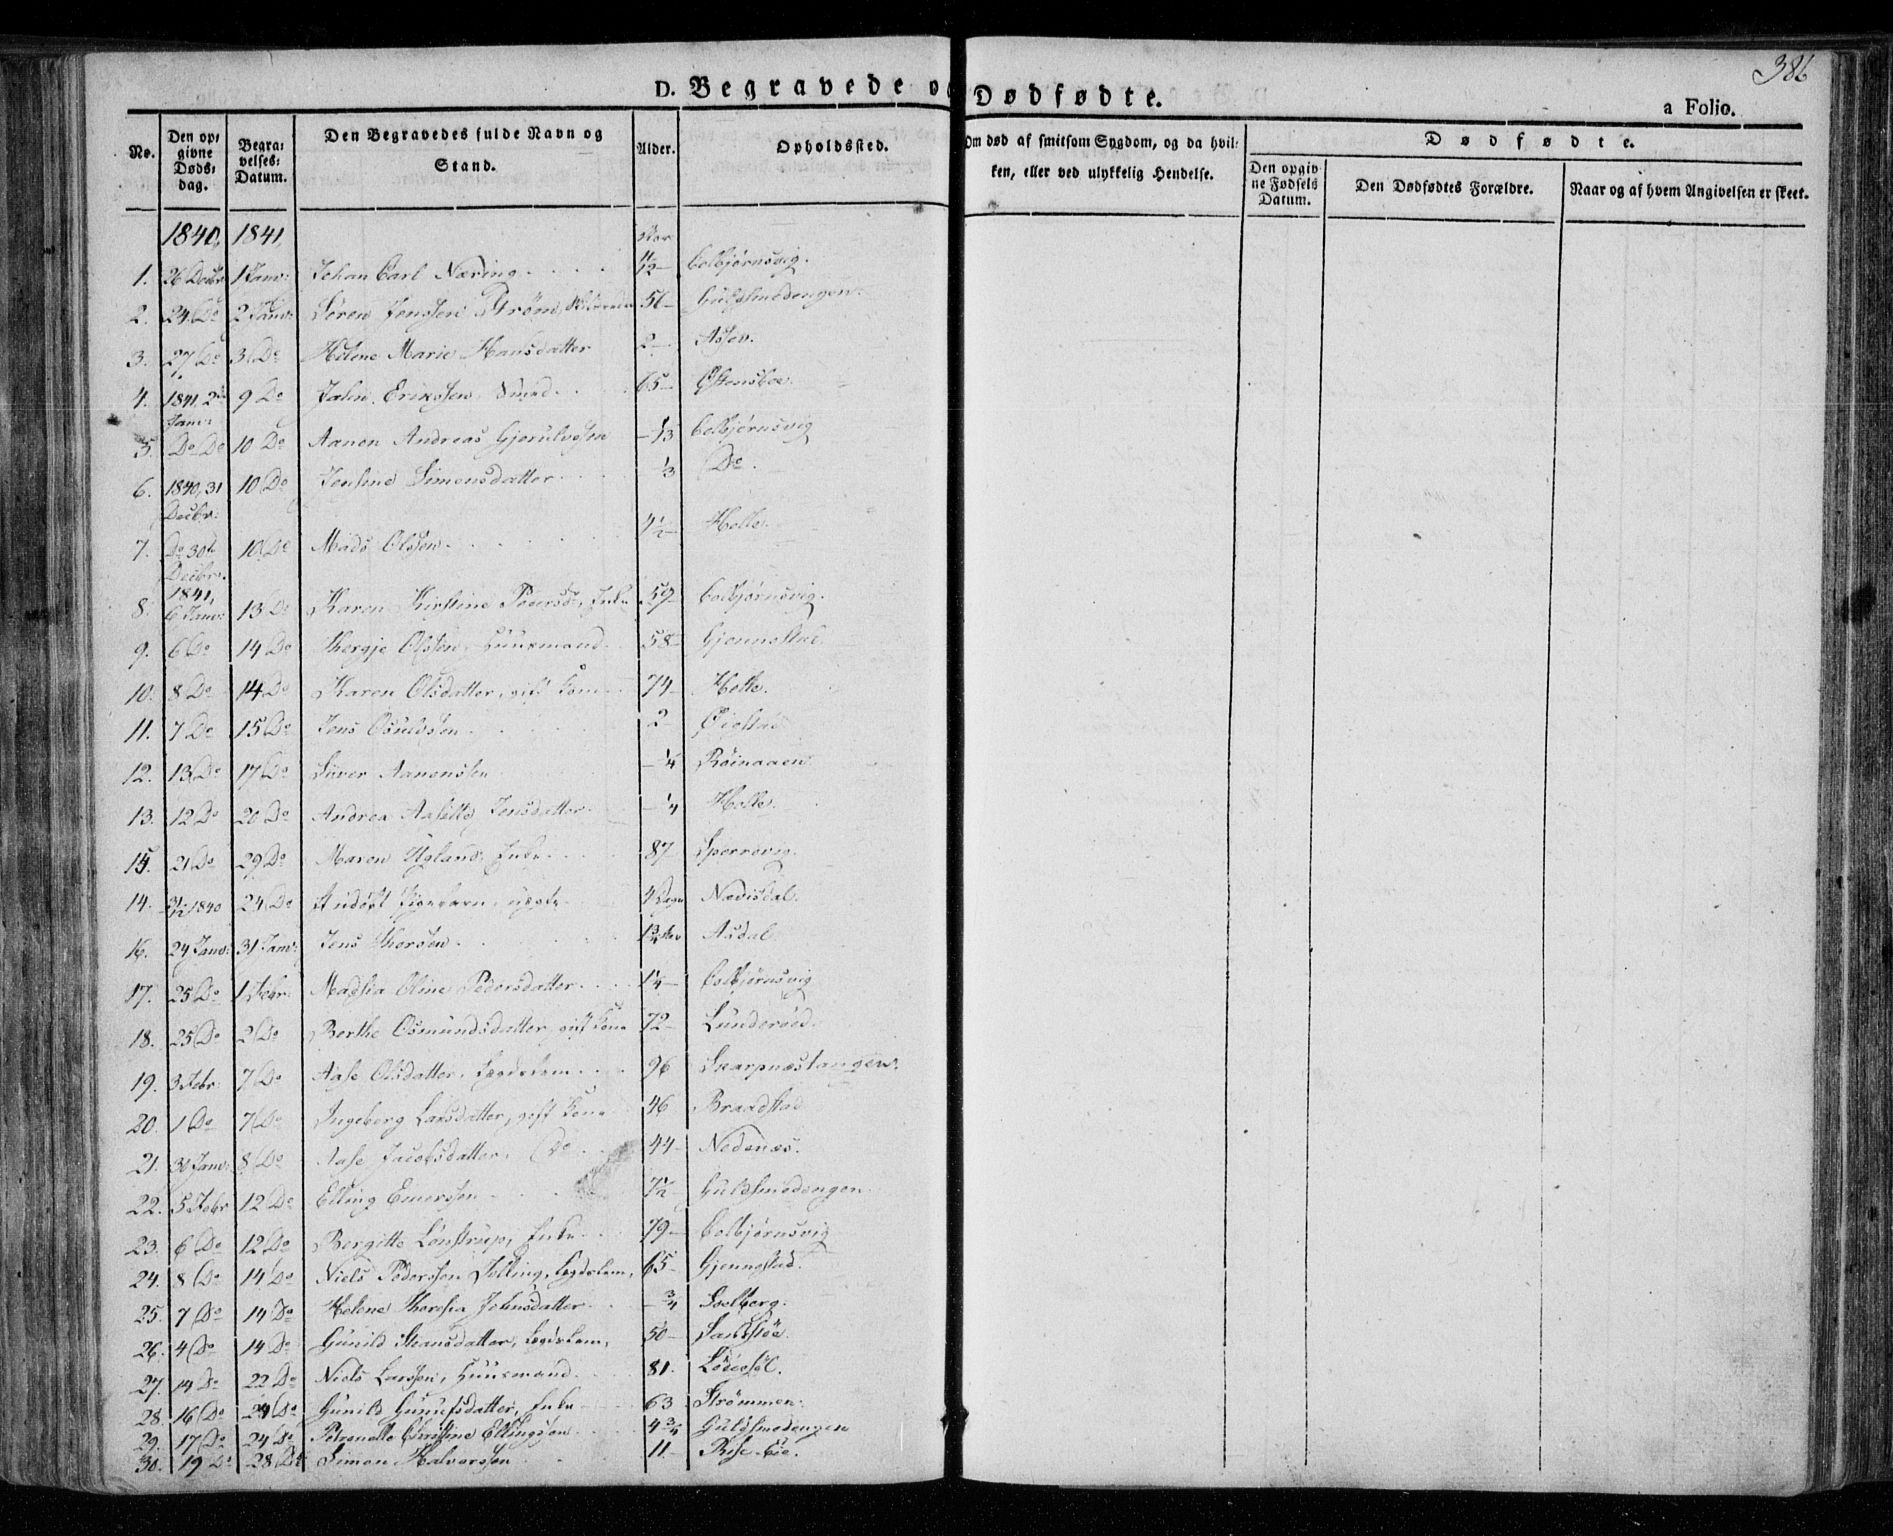 386
D. Begravede o
Dødfødte.
a Folio.
No.
Den op-
givne
Døds-
dag.
Begra-
velses-
Datum.
Den Begravedes fulde Navn og
Stand.
Alder.
Opholdssted.
Om død af smitsom Sygdom, og da hvil-
ken, eller ved ulykkelig Hendelse.
Dødfødte.
Den opgiv-
ne Fødsels
Datum.
Den Dødfødtes Forældre.
Naar og af hvem Angivelsen er skeet.
1840, 1841
1. 26 Decbr 1 Janv: Johan Carl Næring 11/12 Colbjørnsvig.
2. 24 Do 2 Janv: Søren Jenssen Strøm, 56 Guldsmedengen.
3. 27 Do 3 Do Helene Marie Hansdatter 2 Assev.
4. 1841. 2 Janv: 9 Do Jahn Erikssen, 65 Østensboe.
5. Do Do 10 Do Aanon Andreas Gjerulvsen 1/3 Colbjørnsvig
6. 1840, 31 Decbr. 10 Do Jensine Simonsdatter 1/3 Do.
7. Do 30 Decbr. 10 Do Mads Olssen 4 1/2 Holte.
8. 1841, 6 Janv: 13 Do Karen Kirstine Pedersd., Enke 59 Colbjørnsvig.
9. 6 Do 14 Do Thorgje Olssen, Huusmand 58 Gjennestad.
10. 8 Do 14 Do Karen Olsdatter, gift Kone 74 Holte.
11. 7 Do 15 Do Jens Osulvsen 2 Øiestad
12. 13 Do 17 Do Siver Aanonsen 1/4 Røinaaen
13. 12 Do 20 Do Andrea Aslette Jensdatter 1/4 Holte.
15. 21 Do 29 Do Maren Ugland, Enke 87 Sperrevig.
14. 31/12 1840 24 Do Andøbt Pigebarn, uægte 4 Dage Nævisdal.
16. 24 Janv: 31 Janv: Jens Thorsen 1 3/4 Aar Asdal
17. 25 Do 1 Febr: Madsia Oline Pedersdatter 1 1/4 Colbjørnsvig
18. 25 Do 2 Do Berthe Osmundsdatter, gift Kone 72 Lunderød.
19. 3 Febr: 7 Do Aase Olsdatter, Lægdslem 96 Skarpnæstangen.
20. 1 Do 7 Do Ingeborg Larsdatter, gift Kone 46 Brandstad
21. 30 Janv: 8 Do Aase Jacobsdatter. Do 44 Nedenæs.
22. 5 Febr 12 Do Elling Enersen 7 1/2 Guldsmedengen.
23. 6 Do 12 Do Bergitte Lønstrup, Enke 79 Colbjørnsvig
24. 8 Do 14 Do Niels Pederssen Jelling, Lægdslem, 65 Gjennestad.
25. 7 Do 14 Do Helene Theresia Johnsdatter 3/4 Soelberg.
26. 4 Do 14 Do Gunild Steansdatter, Lægdslem, 50 Sandstøe
27. 14 Do 22 Do Niels Larssen, Huusmand 81. Lødesøl.
28. 16 Do 24 Do Gunild Gunufsdatter, Enke 63 Strømmen.
29. 17 Do 24 Do Petronelle Christine Ellingsen 4 3/4 Guldsmedengen
30. 19 Do 28 Do Simon Halvorssen 11